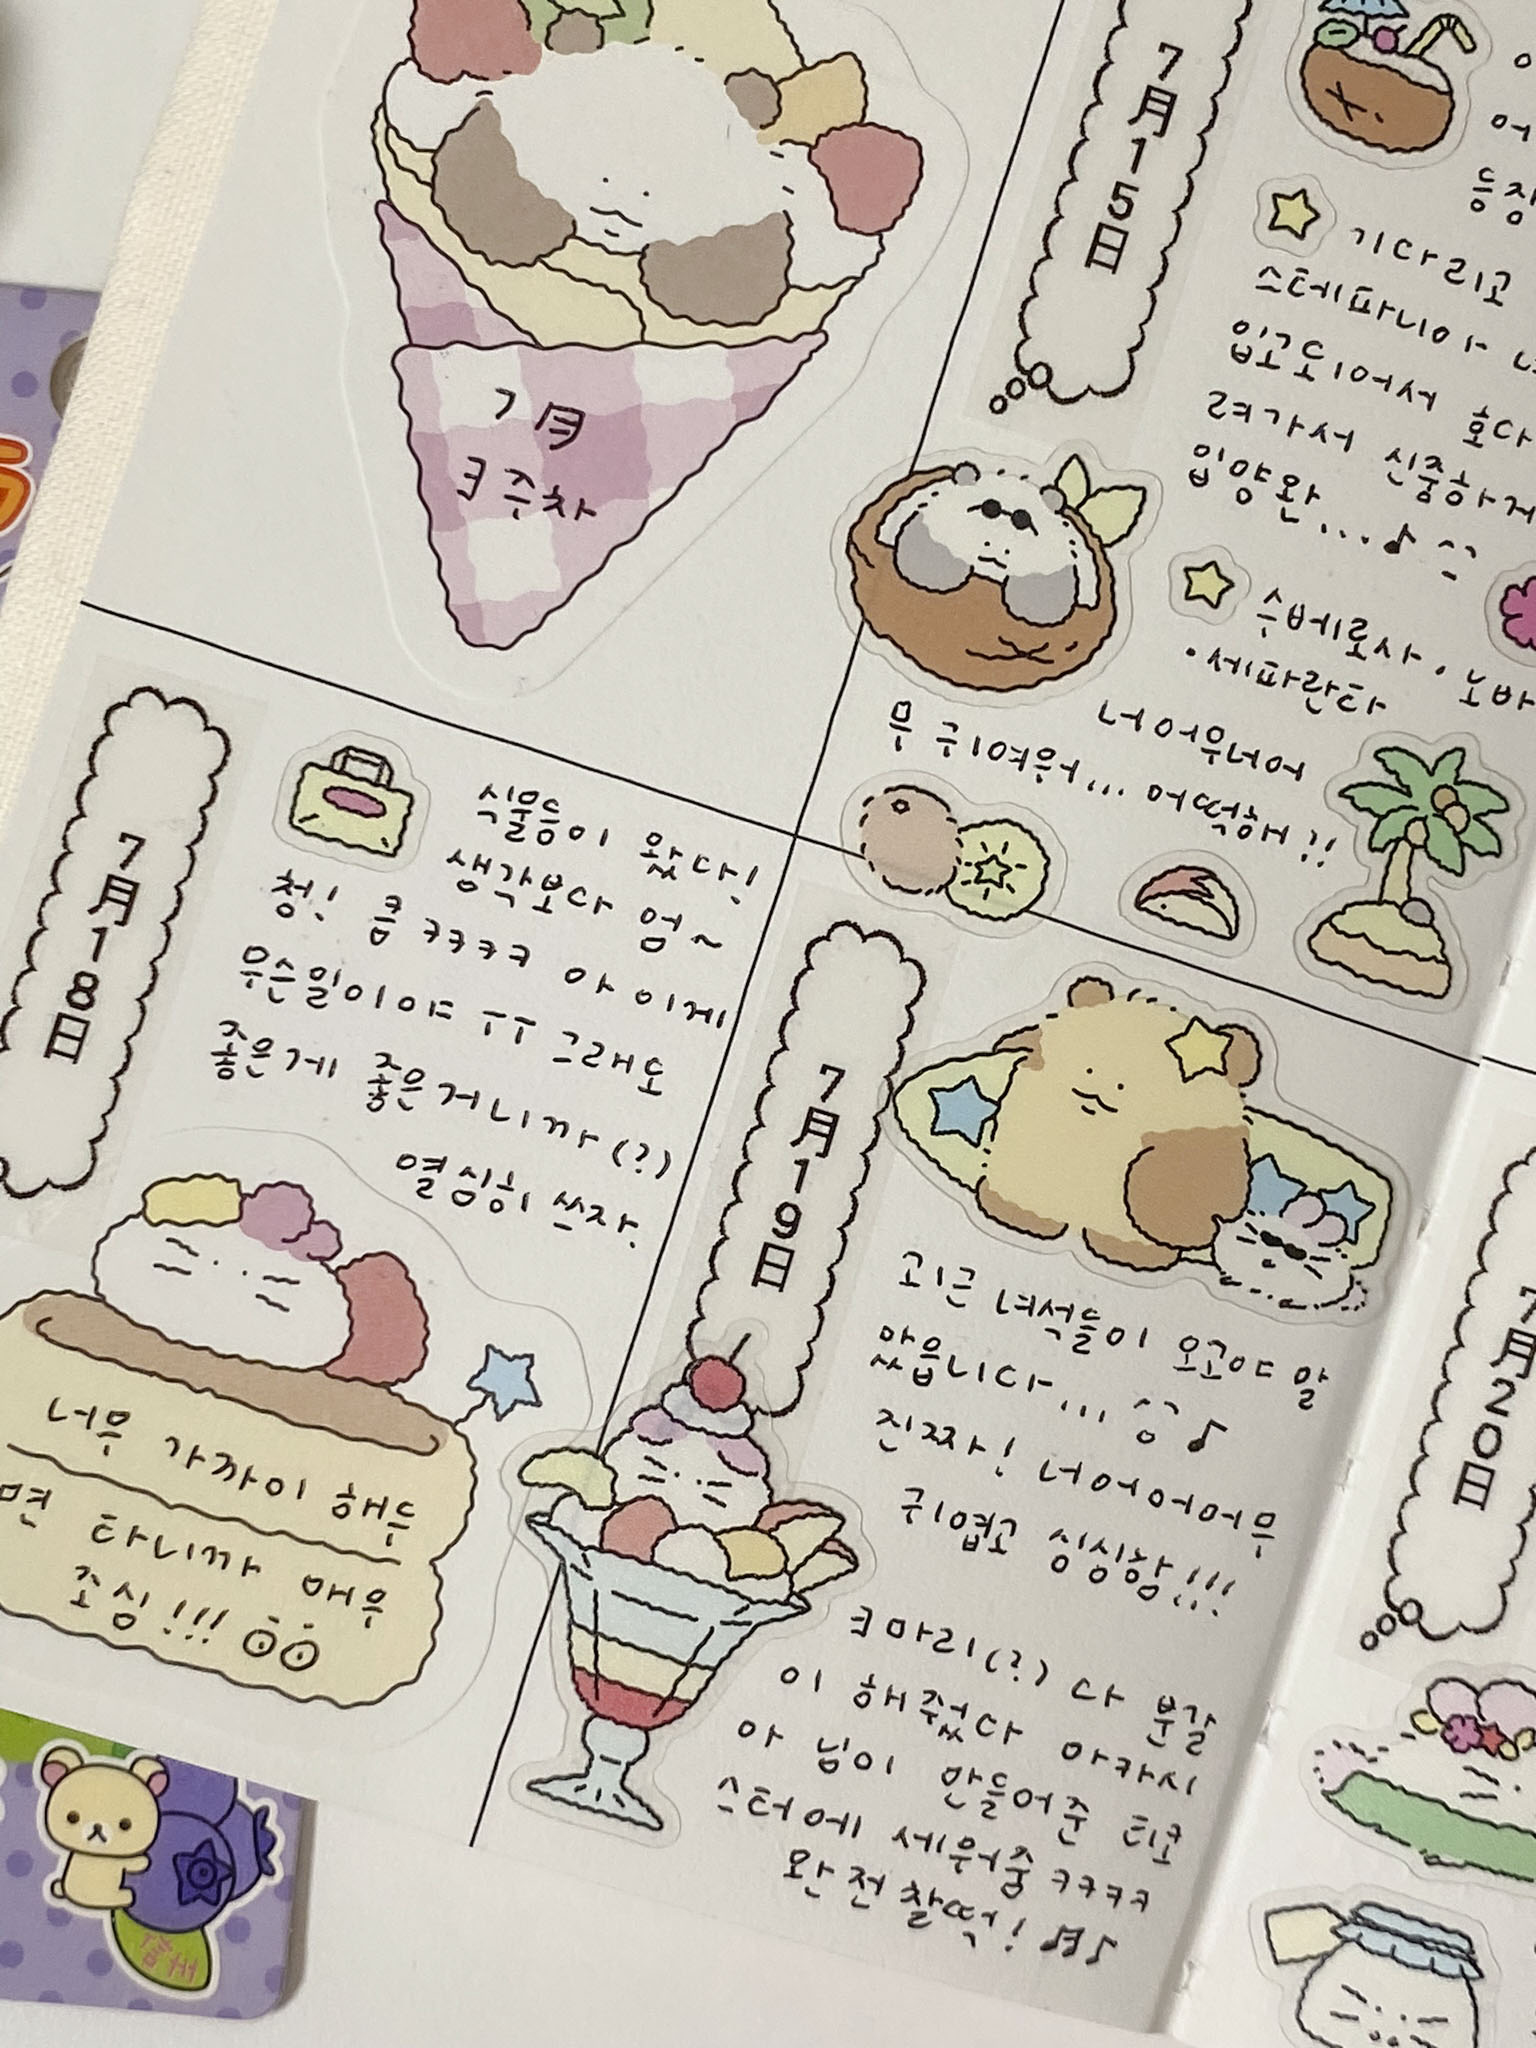 7月
ㅌ주차
7月15日
기다리고
스테파니아
입고이사서
려가서 신중하게
입양완...♪
수바로사.
·세파란차
너어무너어
무 귀여워... 어떡해!!
7月18日
식물등이 왔다!
생각보다 엄~
청! 큼 ㅋㅋㅋㅋ 아 이게
무슨일이야 ㅜㅜ 그래도
좋은게 좋은거니까(?)
열심히 쓰자.
너무 가까이 해두
면 타니까 매우
조심!!!
7月19日
귀근 녀석들이 오고야 말
았습니다... ♪
진짜! 너어어어무
귀엽고 싱싱함!!!
ㅌ마리(?) 다 분갈
이 해줬다 아카시
아 님이 만들어준 틴코
스터에 세워줌 ㅋㅋㅋㅋ
완전 찰떡!
7月20日